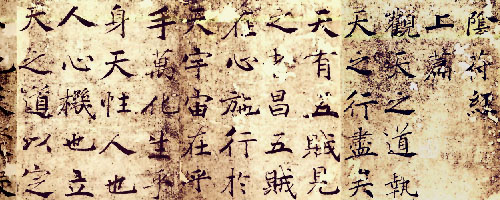 陰符經
上篇
觀天之道執
天之行盡矣
天有五賊見
之者昌五賊
在心施行於
天宇宙在乎
手萬化生乎
身天性人也
人心機也立
天之道以定